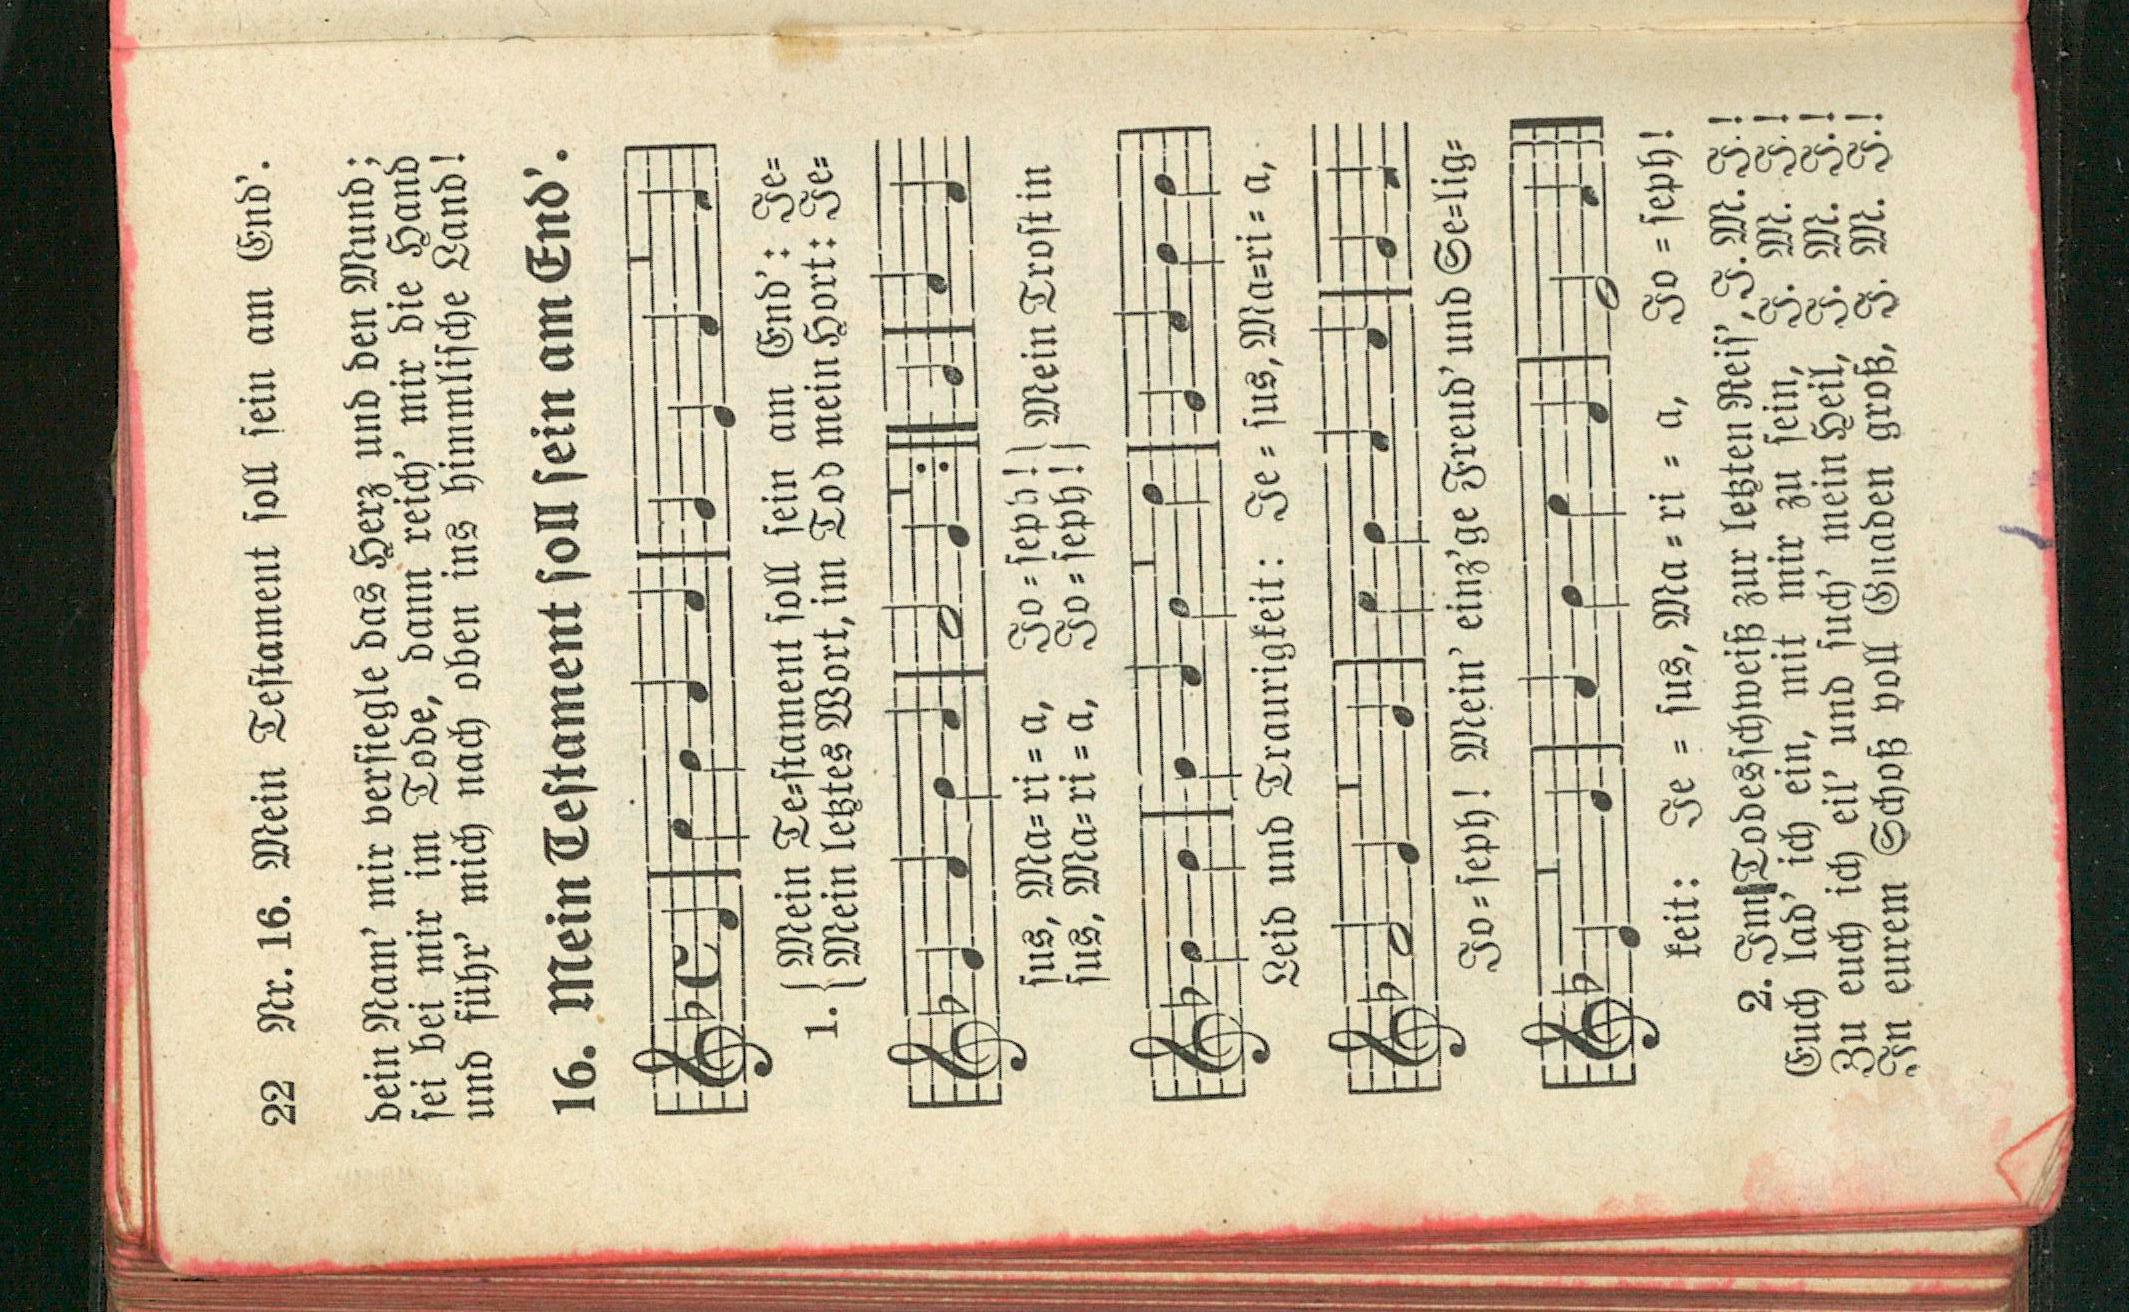 22 Nr. 16. Mein Teſtament ſoll ſein am End'.
dein Nam' mir verſiegle das Herz und den Mund;
ſei bei mir im Tode, dann reich' mir die Hand
und führ' mich nach oben ins himmliſche Land!
16. Mein Teſtament ſoll ſein am End'.
1. { Mein Te=ſtament ſoll ſein am End': Je=
{ Mein letztes Wort, im Tod mein Hort: Je=
ſus, Ma=ri=a, Jo=ſeph! } Mein Troſt in
ſus, Ma=ri=a, Jo=ſeph! }
Leid und Traurigkeit: Je=ſus, Ma=ri=a,
Jo=ſeph! Mein' einz'ge Freud' und Se=lig=
keit: Je=ſus, Ma=ri=a, Jo=ſeph!
2. Im Todesſchweiß zur letzten Reiſ', J. M. J.!
Euch lad' ich ein, mit mir zu ſein, J. M. J.!
Zu euch ich eil' und ſuch' mein Heil, J. M. J.!
In eurem Schoß voll Gnaden groß, J. M. J.!